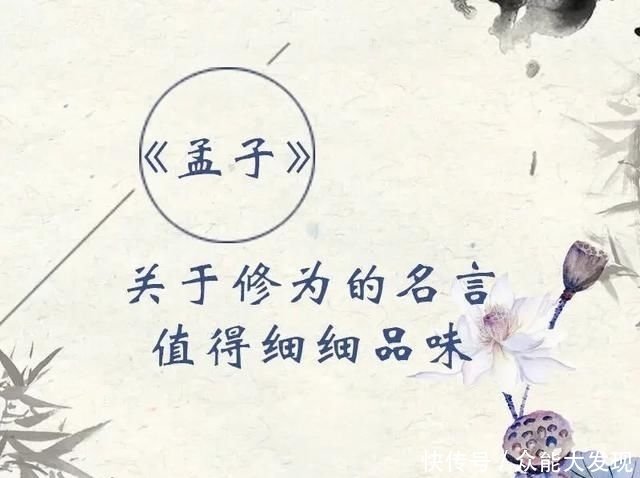 《孟子》
关于修为的名言
值得细细品味
快传号/众能大发现